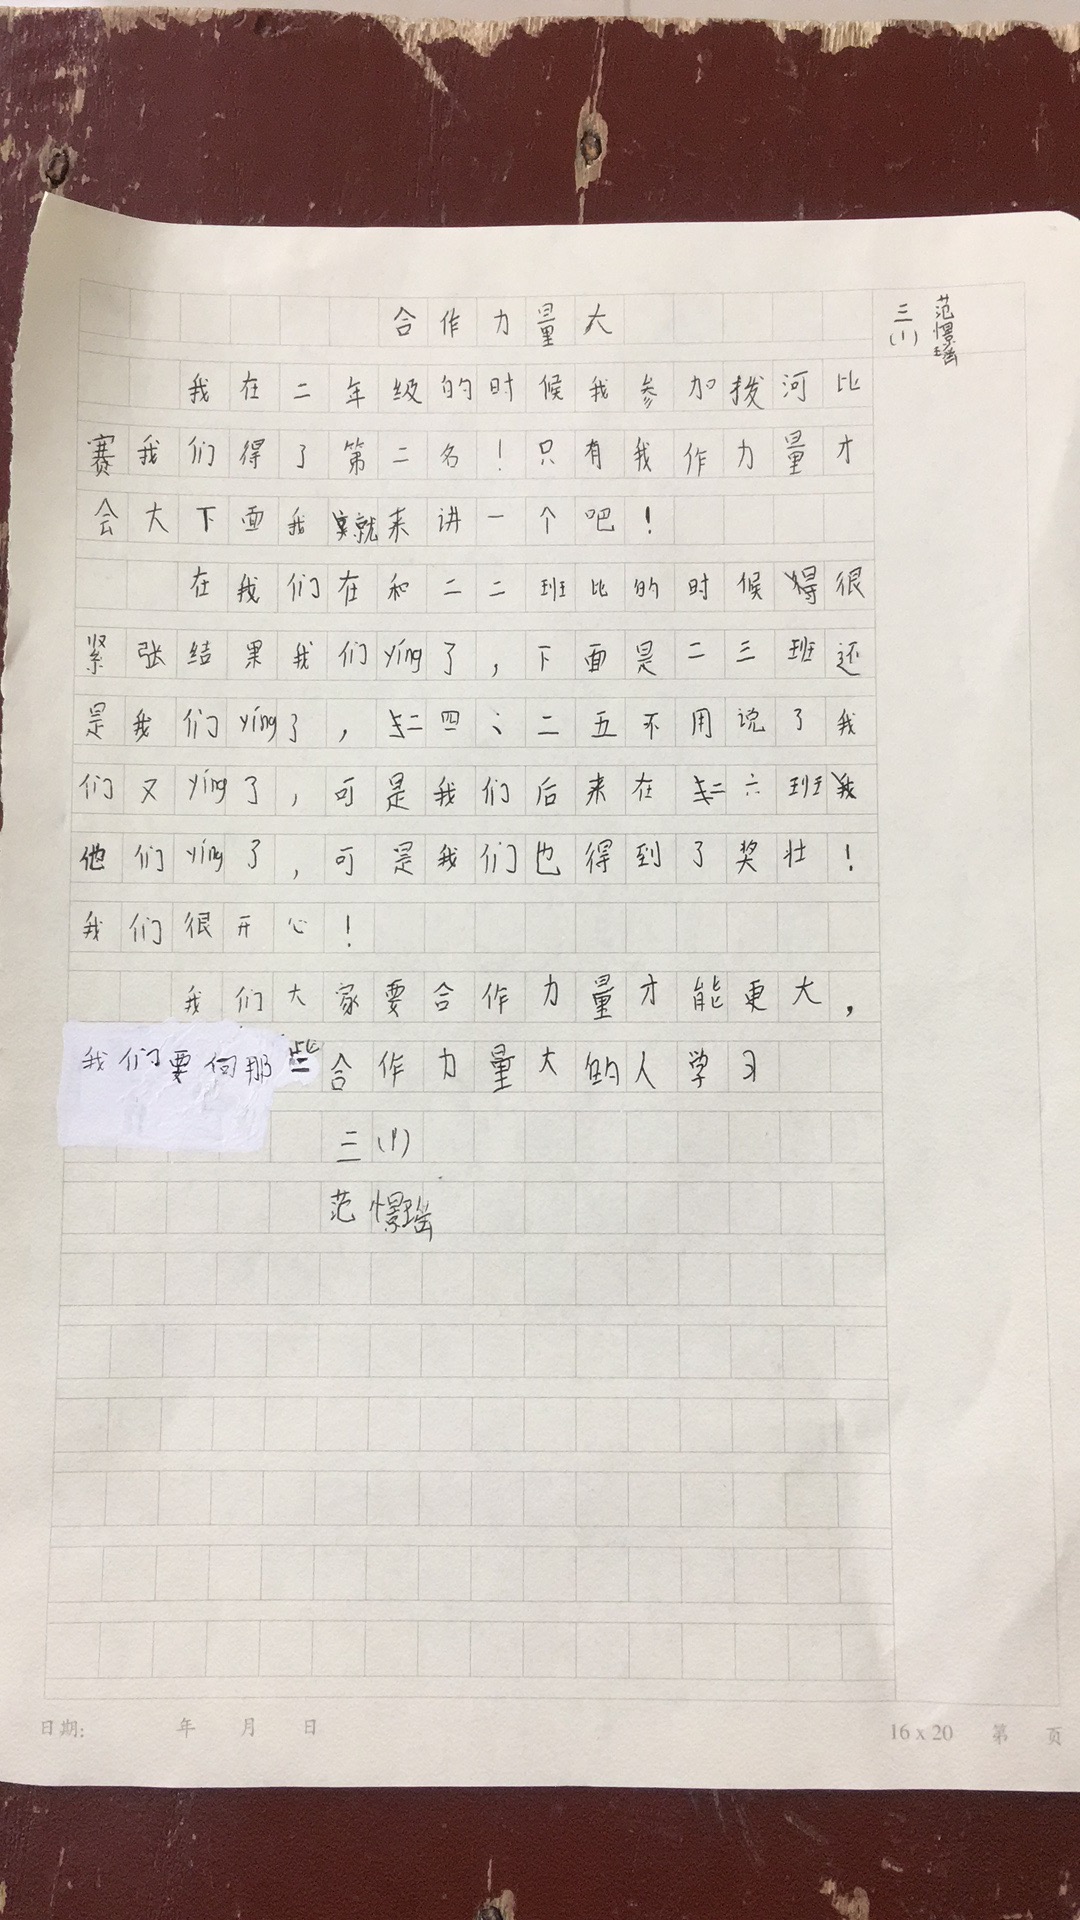 合作力量大
三(1)
范憬瑶
我在二年级的时候我参加拨河比
赛我们得了第二名！只有我作力量才
会大下面我就来讲一个吧！
在我们在和二二班比的时候得很
紧张结果我们yíng了，下面是二三班还
是我们yíng了，二四、二五不用说了我
们又yíng了，可是我们后来在二六班
他们yíng了，可是我们也得到了奖壮！
我们很开心！
我们大家要合作力量才能更大，
我们要向那些合作力量大的人学习
三(1)
范憬瑶
日期: 年 月 日
16 x 20 第 页